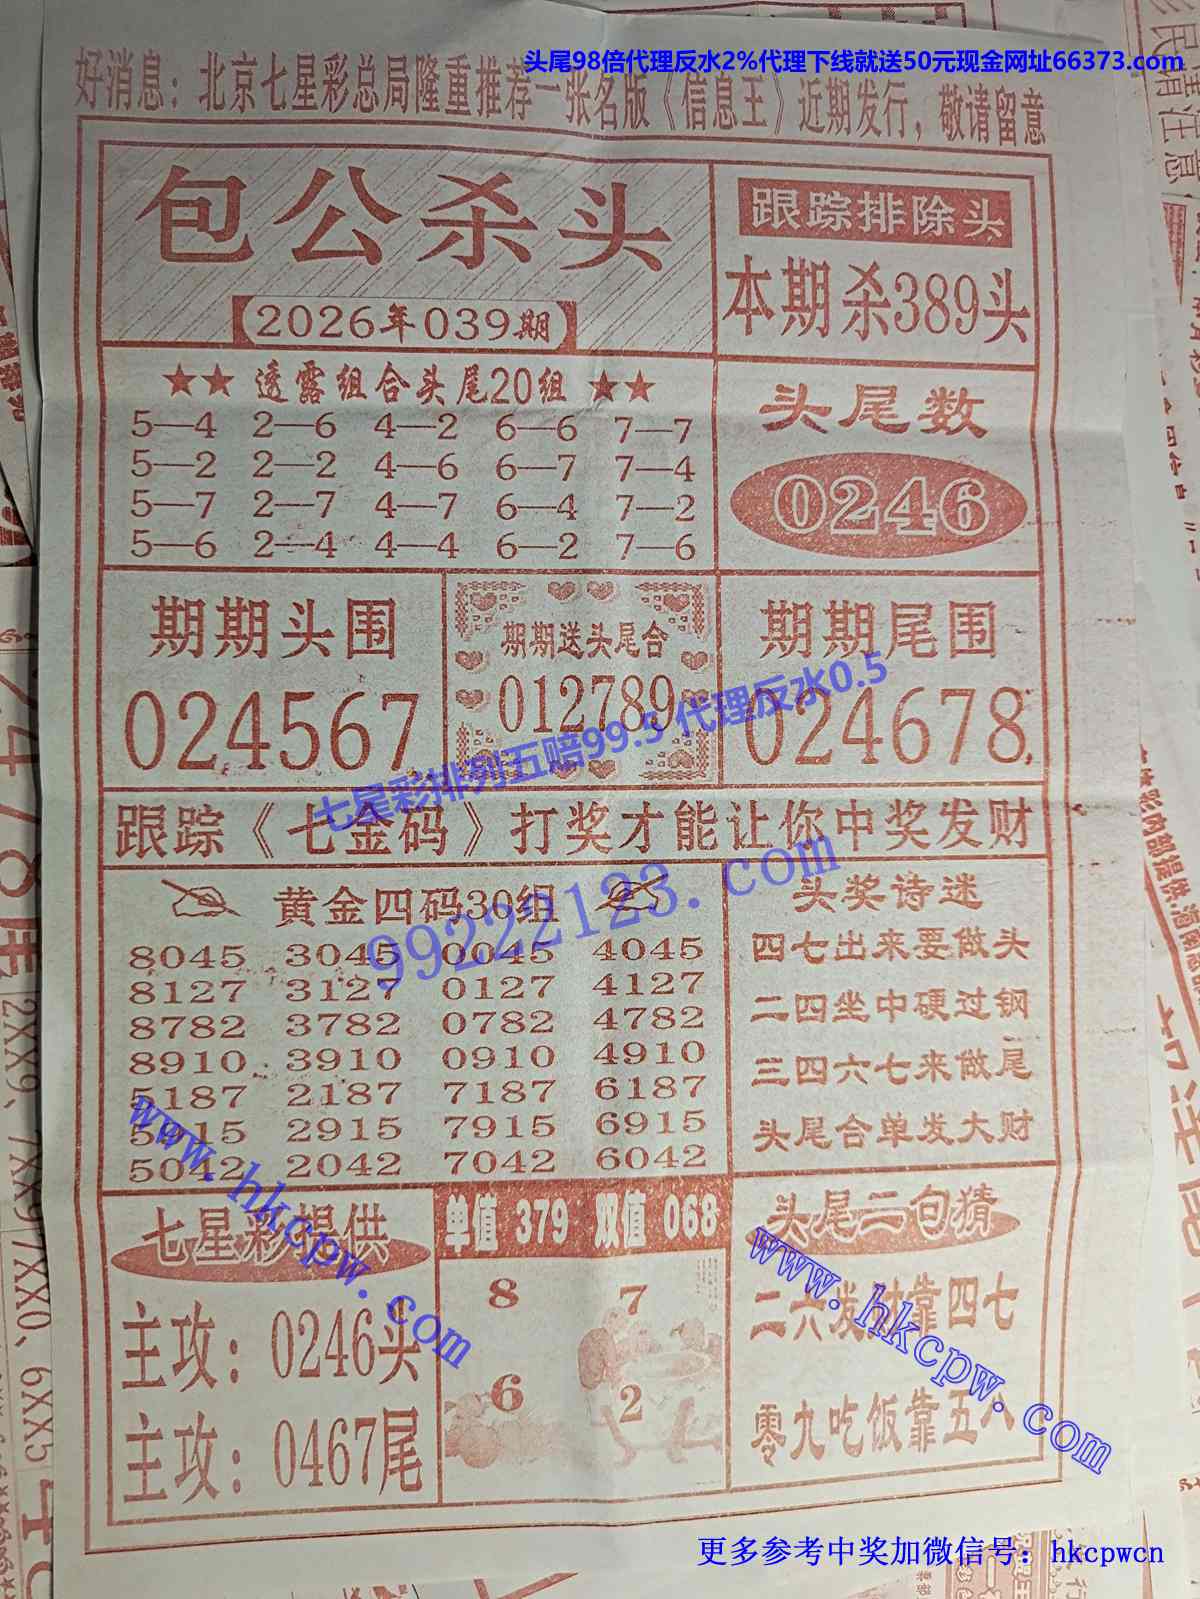 头尾98倍代理反水2%代理下线就送50元现金网址66373.com
好消息：北京七星彩总局隆重推荐一张名版《信息王》近期发行，敬请留意
包公杀头
2026年039期
跟踪排除头
本期杀389头
★★ 透露组合头尾20组 ★★
5—4 2—6 4—2 6—6 7—7
5—2 2—2 4—6 6—7 7—4
5—7 2—7 4—7 6—4 7—2
5—6 2—4 4—4 6—2 7—6
头尾数
0246
期期头围
024567
期期送头尾合
012789
期期尾围
024678
七星彩排列五赔99.5 代理反水0.5
跟踪《七金码》打奖才能让你中奖发财
99222123.com
黄金四码30组
8045 3045 0045 4045
8127 3127 0127 4127
8782 3782 0782 4782
8910 3910 0910 4910
5187 2187 7187 6187
5915 2915 7915 6915
5042 2042 7042 6042
头奖诗迷
四七出来要做头
二四坐中硬过钢
三四六七来做尾
头尾合单发大财
www.hkcpw.com
七星彩提供
主攻：0246头
主攻：0467尾
单值 379 双值 068
8 7
6 2
头尾二句猜
二六发财靠四七
零九吃饭靠五八
www.hkcpw.com
更多参考中奖加微信号：hkcpwcn